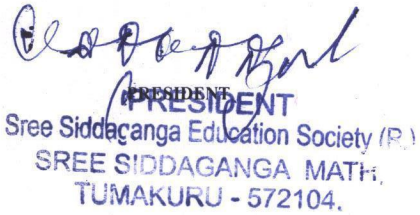 PRESIDENT
PRESIDENT
Sree Siddaganga Education Society (R.)
SREE SIDDAGANGA MATH,
TUMAKURU - 572104.